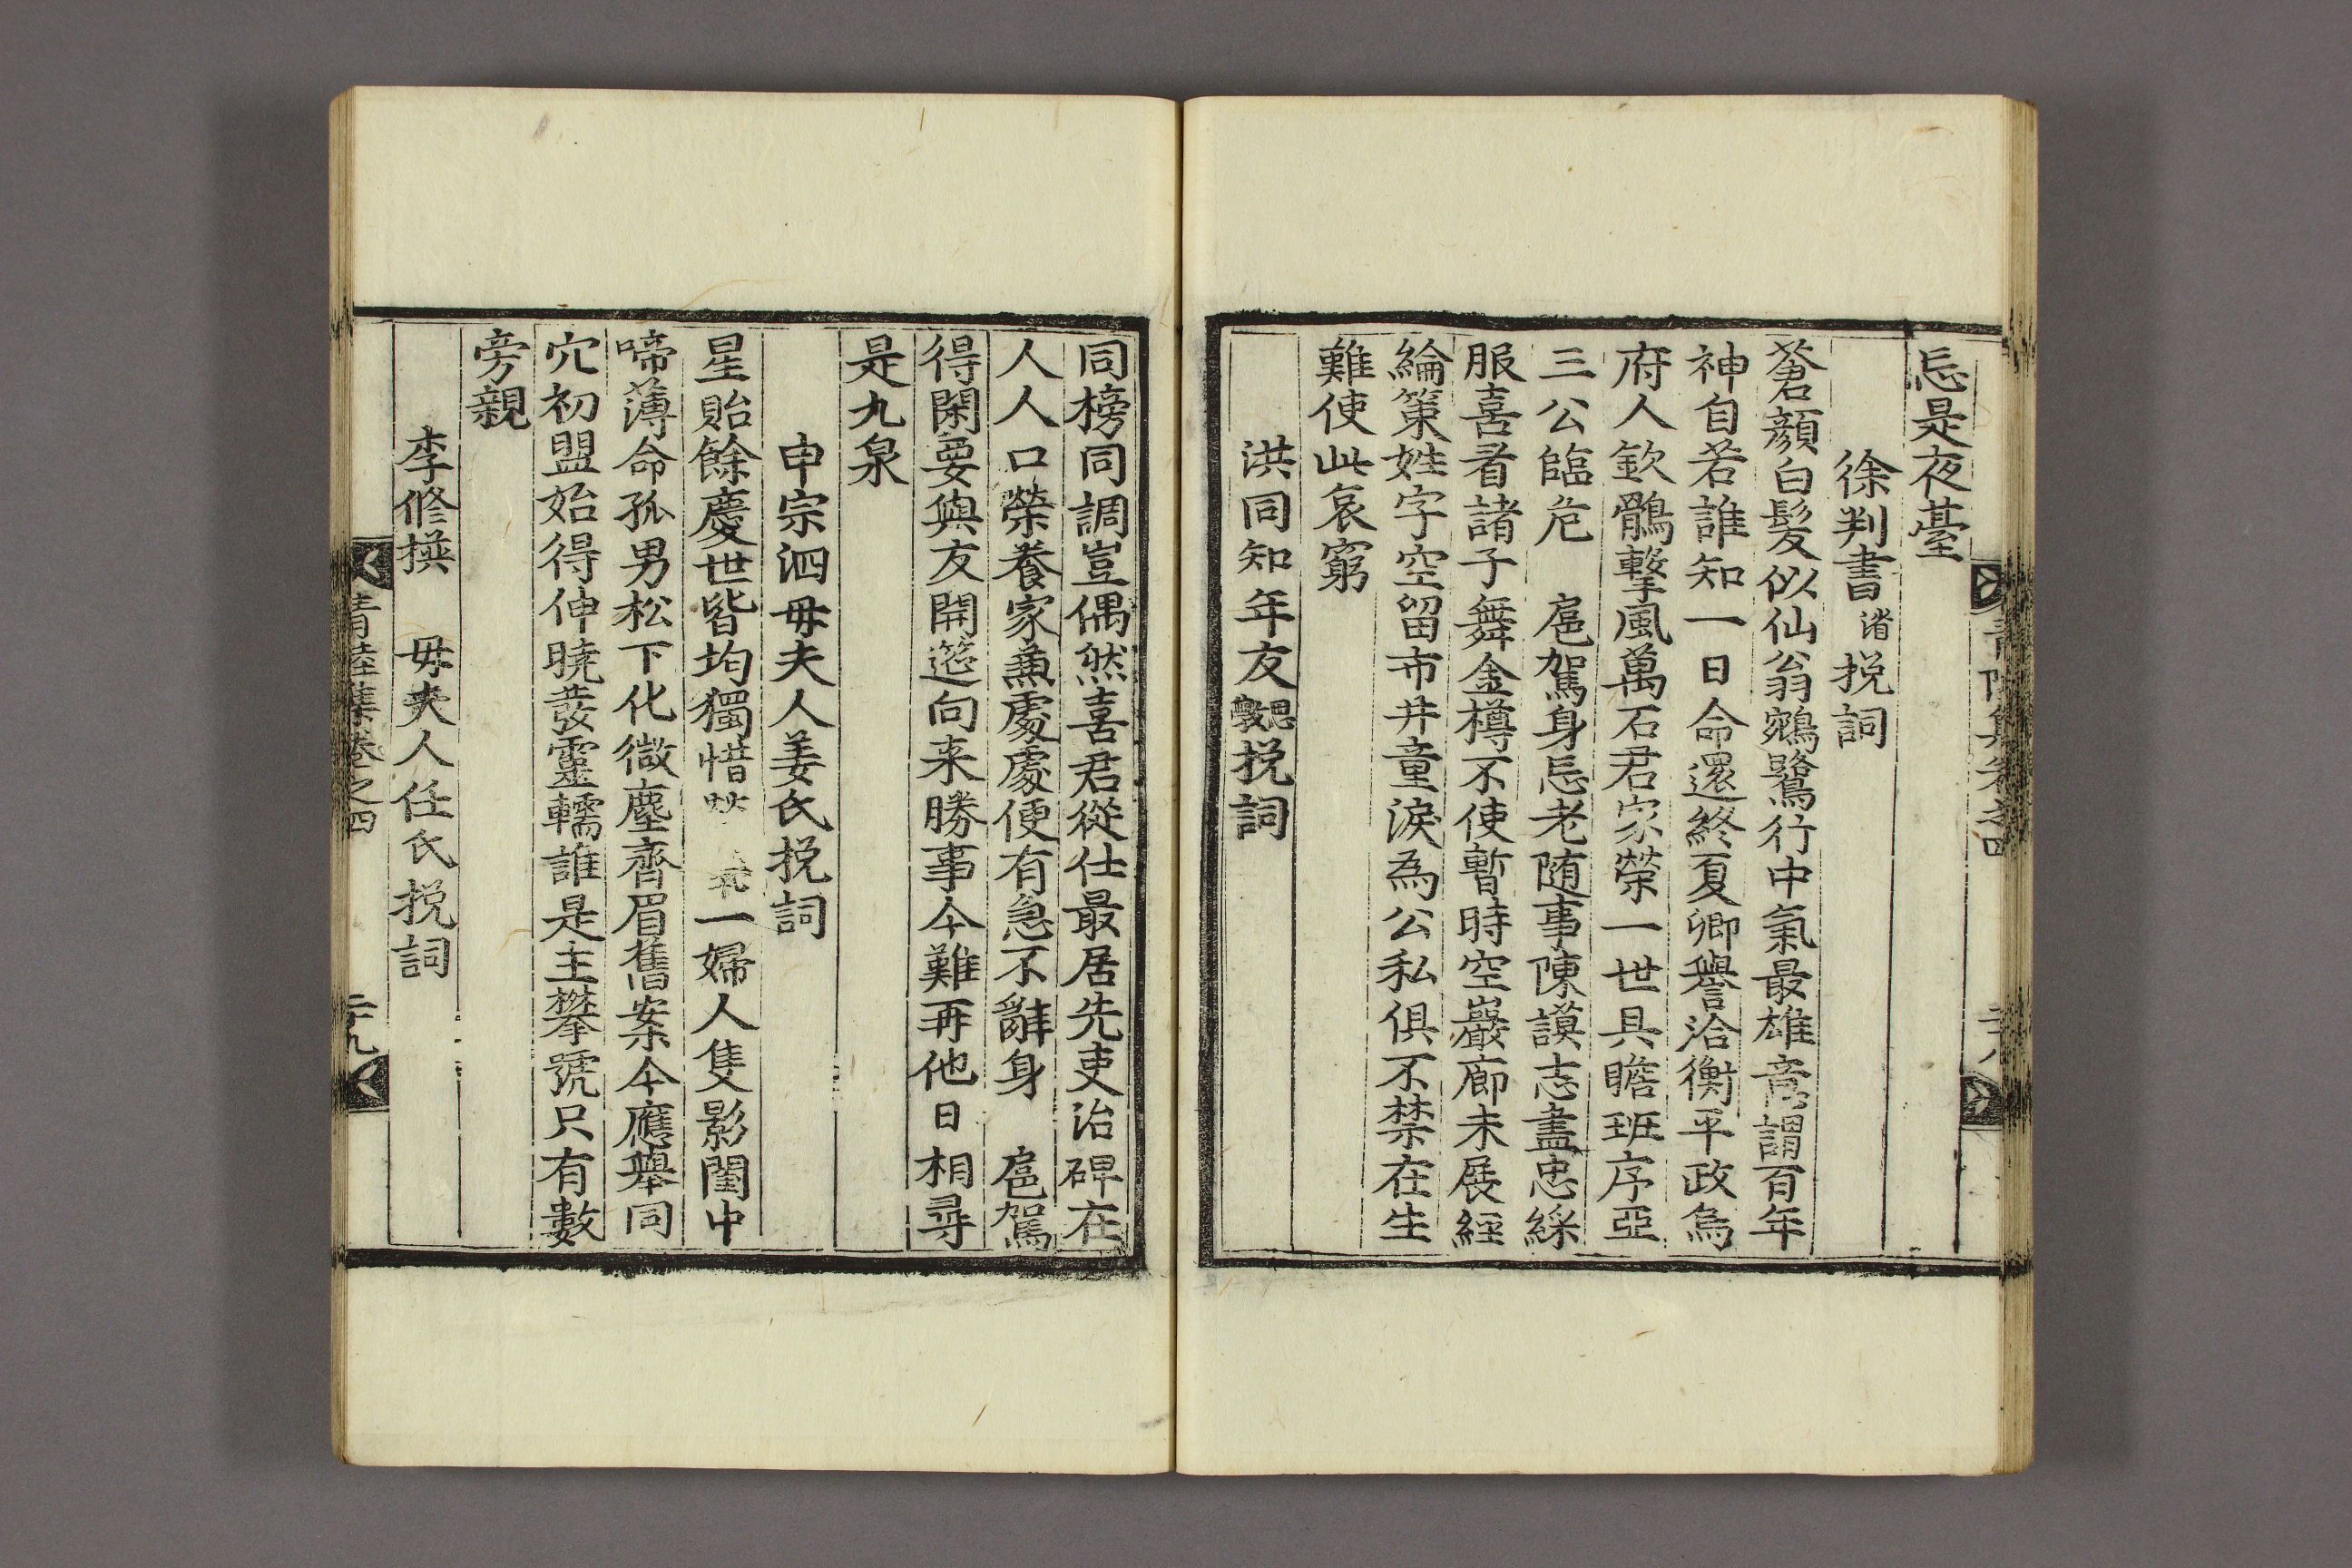 忘是夜䑓
徐判書渻挽詞
蒼顔白髮似仙翁鵷鷺行中氣最雄意謂百年
神自若誰知一日命還終夏卿譽洽衡平政烏
府人欽鶻擊風萬石君家榮一世具瞻班序亞
三公臨危 扈駕身忘老随事陳謨志盡忠綵
服喜看諸子舞金樽不使暫時空巖廊未展經
綸策姓字空留市井童淚為公私俱不禁在生
難使此哀窮
洪同知年友思斅挽詞
同榜同調豈偶然喜君從仕最居先吏治碑在
人人口榮養家兼處處便有急不辭身 扈駕
得閑要與友開筵向来勝事今難再他日相尋
是九泉
申宗泗毋夫人姜氏挽詞
星貽餘慶世皆均獨惜 一婦人隻影閨中
啼薄命孤男松下化微塵齊眉舊案今應舉同
穴初盟始得伸曉發靈轜誰是主攀號只有數
旁親
李修撰 毋夫人任氏挽詞
青陸集卷之四
二十九